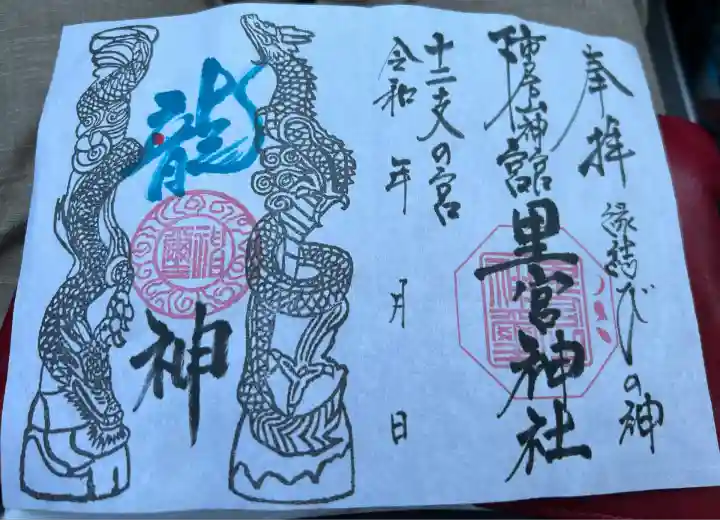 奉拝
縁結びの神
里宮神社
十二支の宮
令和 年 月 日
龍
神